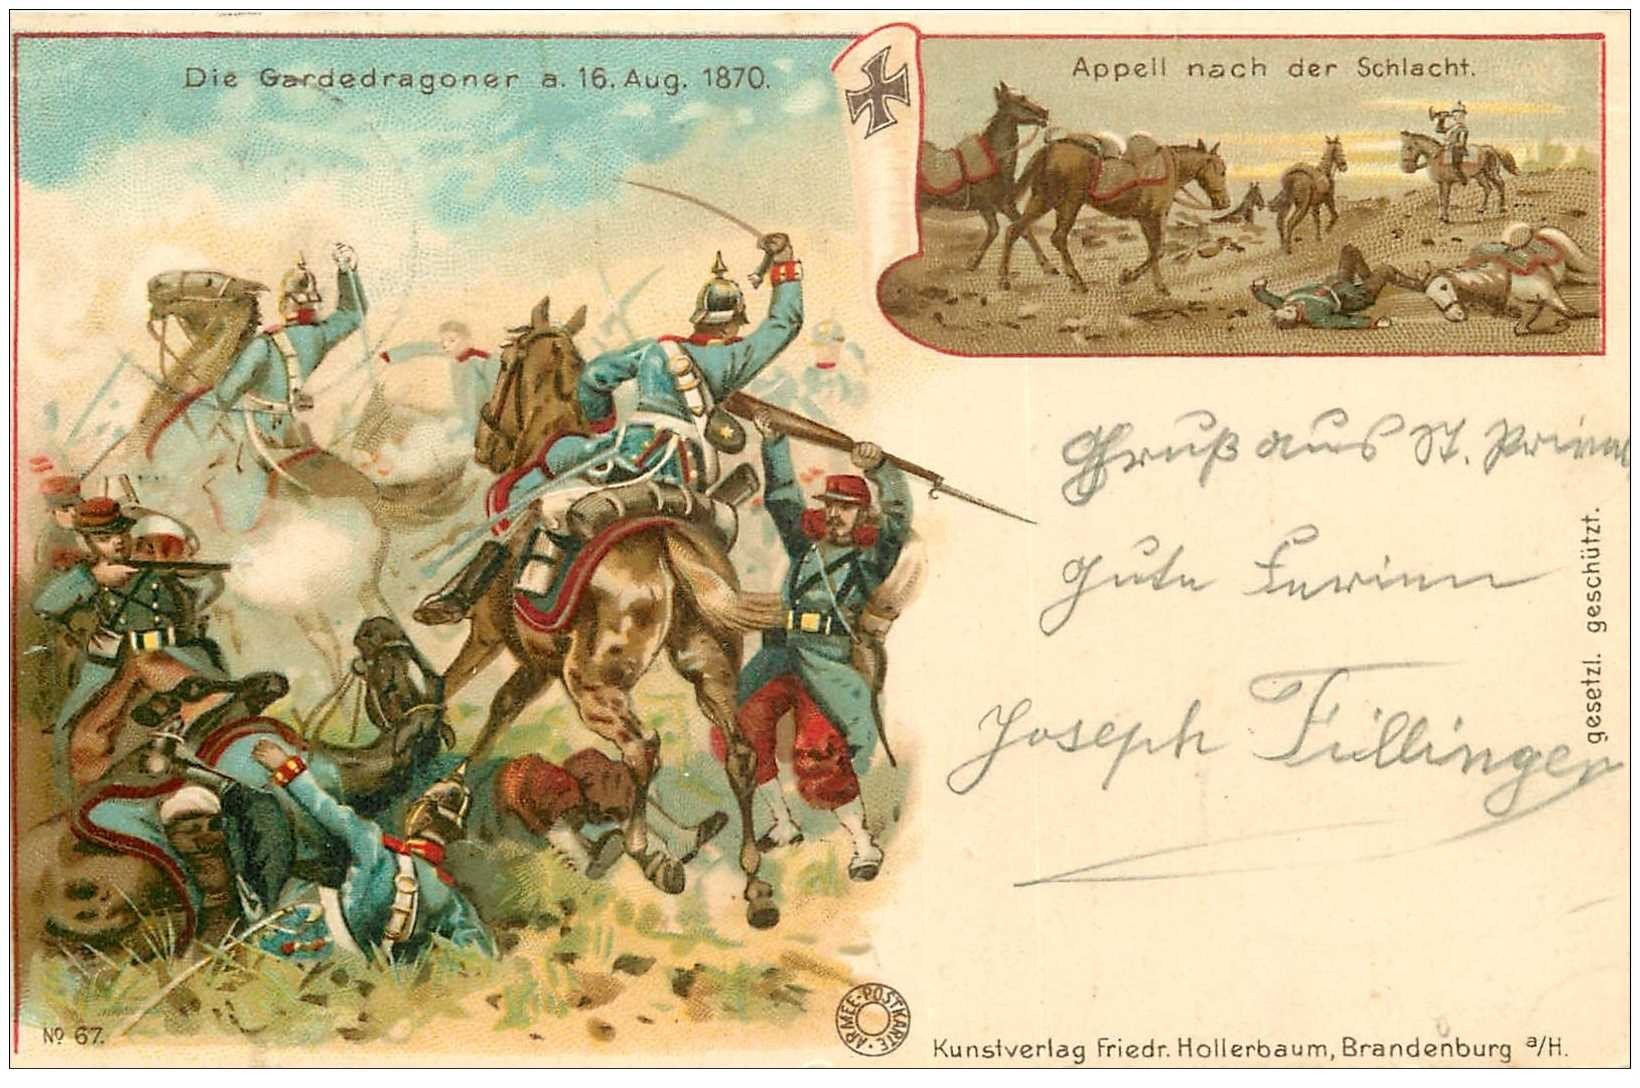 Die Gardedragoner a. 16. Aug. 1870.
Appell nach der Schlacht.
Gruß aus St. Privat
Gute Ferien
Joseph Fillinger
gesetzl. geschützt.
No 67.
ARMEE-POSTKARTE
Kunstverlag Friedr. Hollerbaum, Brandenburg a/H.